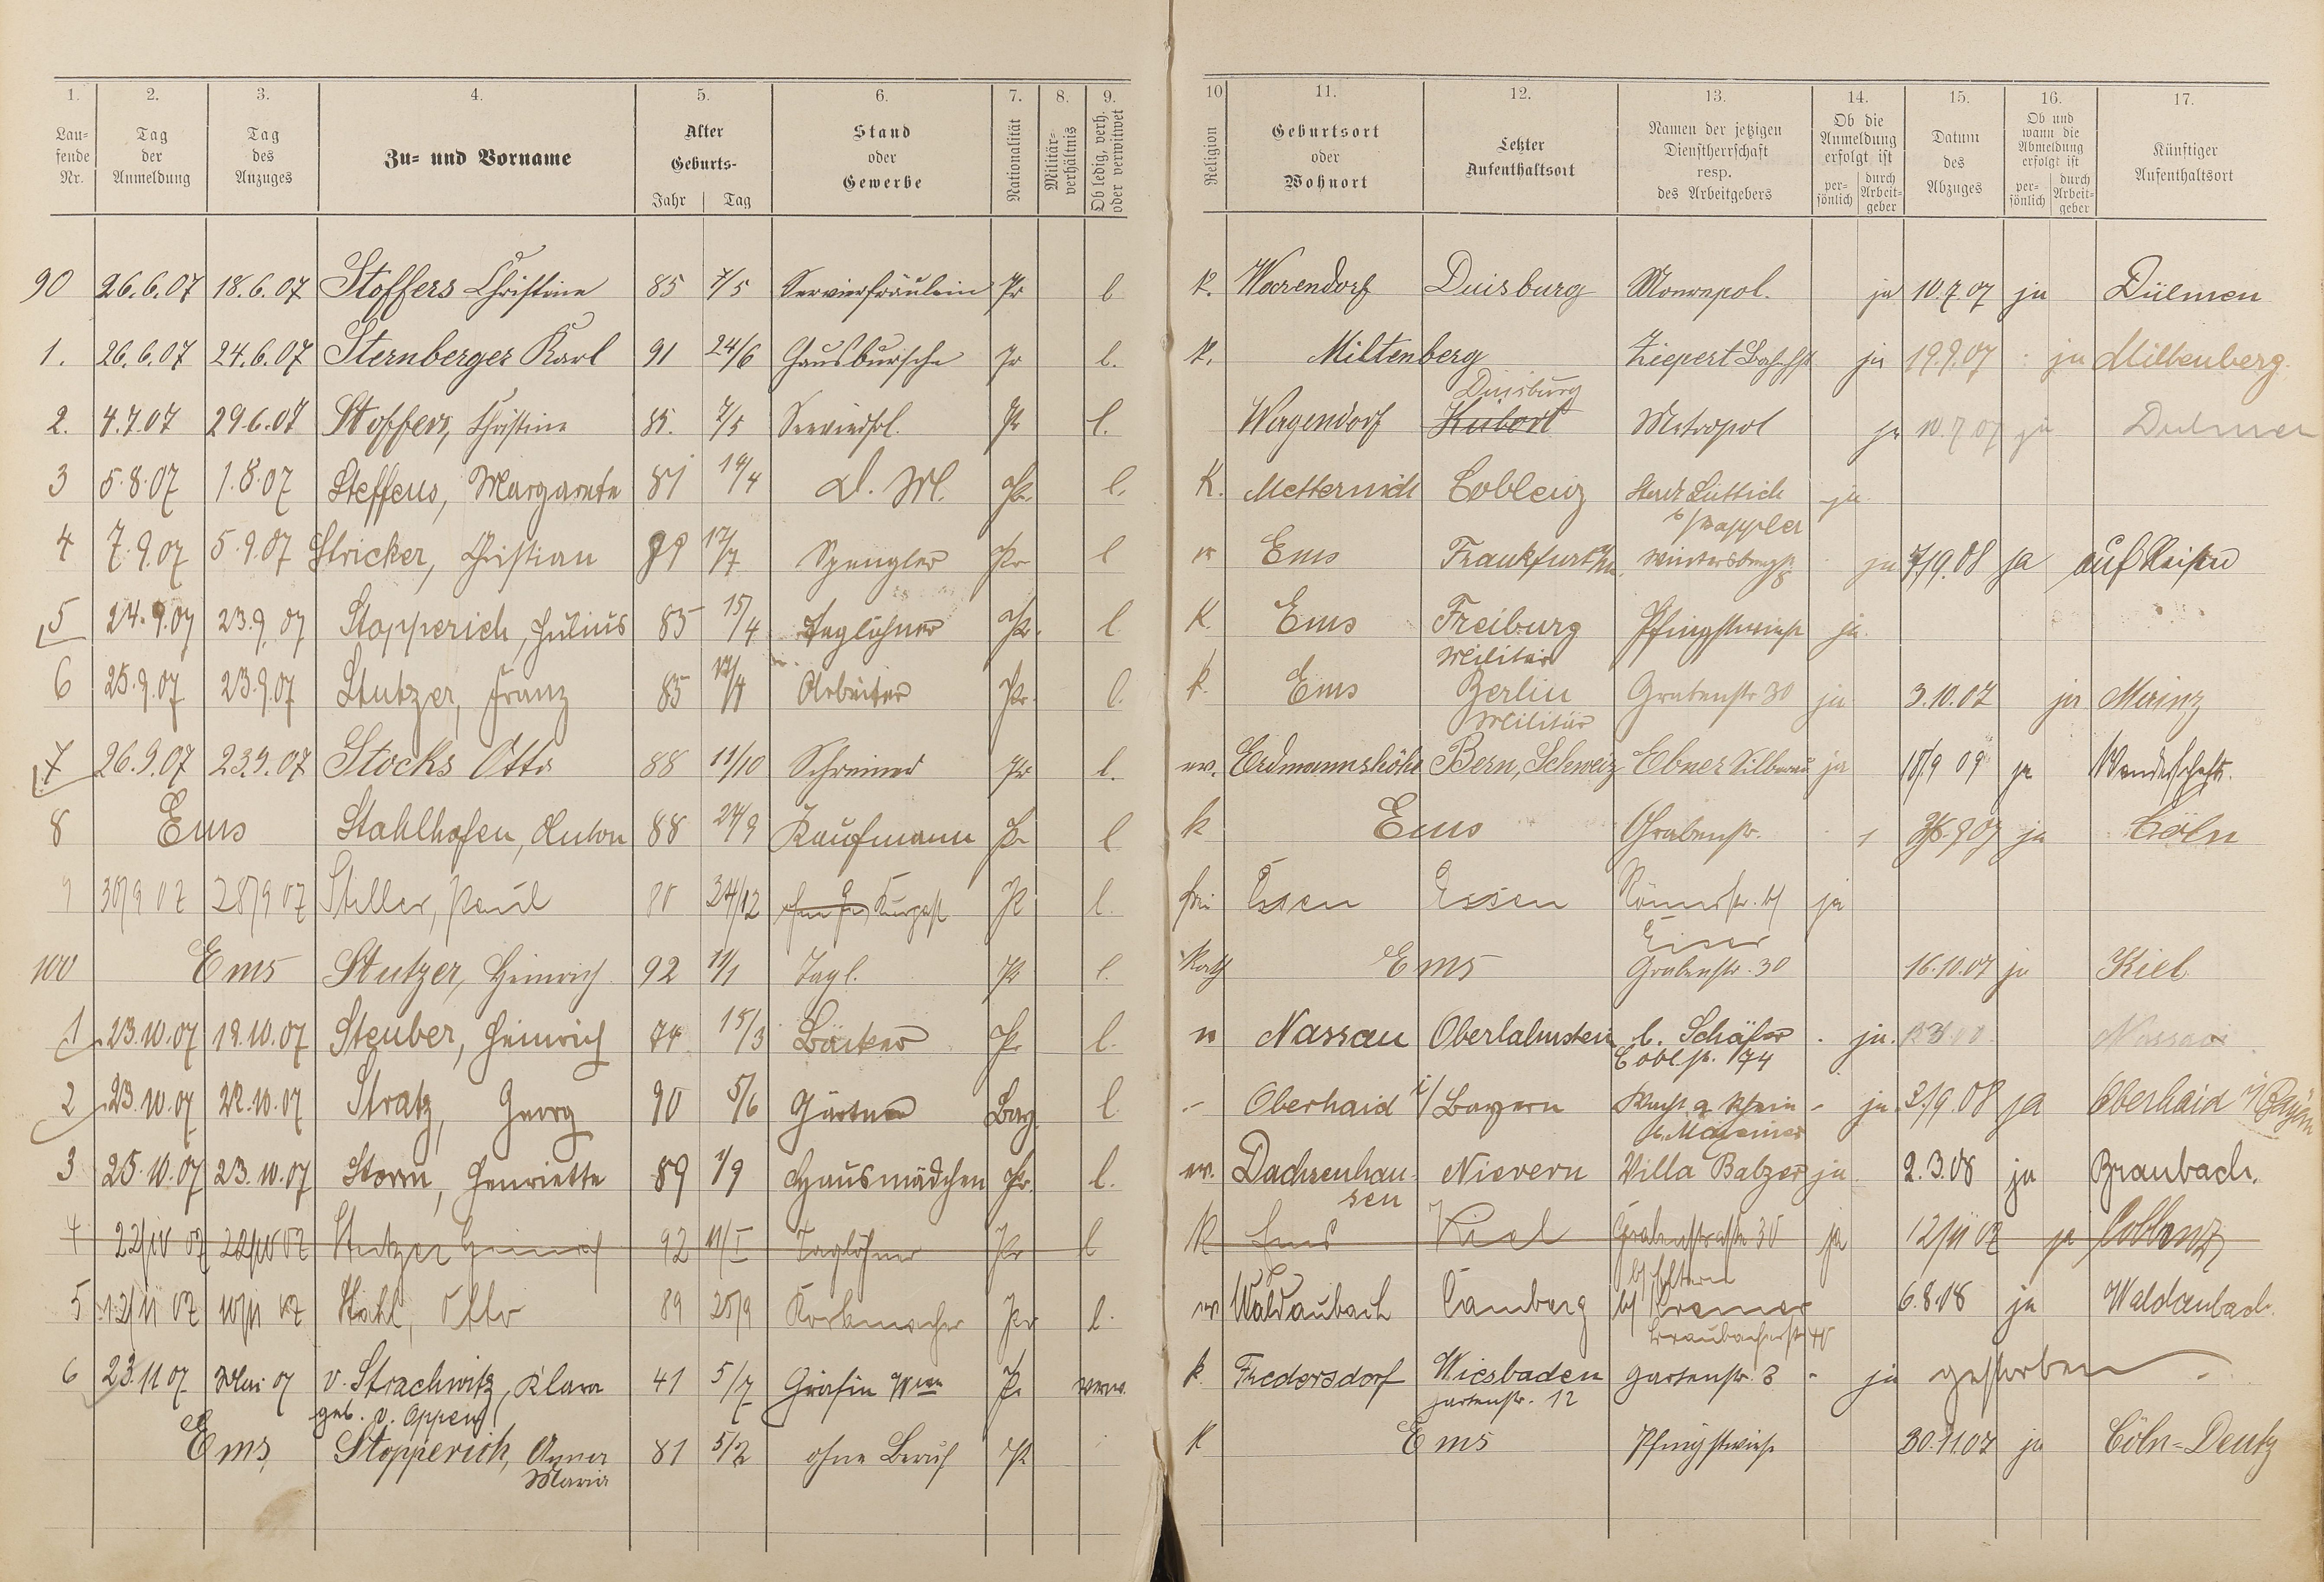 1. 2. 3. 4. 5. 6. 7. 8. 9. 10 11. 12. 13. 14. 15. 16. 17.
Lau-
fende
Nr.
Tag
der
Anmeldung
Tag
des
Anzuges
Zu- und Vorname
Alter
Geburts-
Jahr Tag
Stand
oder
Gewerbe
Nationalität
Militär-
verhältnis
Ob ledig, verh.
oder verwitwet
Religion
Geburtsort
oder
Wohnort
Letzter
Aufenthaltsort
Namen der jetzigen
Dienstherrschaft
resp.
des Arbeitgebers
Ob die
Anmeldung
erfolgt ist
per-
sönlich
durch
Arbeit-
geber
Datum
des
Abzuges
Ob und
wann die
Abmeldung
erfolgt ist
per-
sönlich
durch
Arbeit-
geber
Künftiger
Aufenthaltsort
90 26.6.07 18.6.07 Stoffers Christine 85 7/5 Servierfräulein Pr l. k. Warendorf Duisburg Monopol. ja 10.7.07 ja Dülmen
1. 26.6.07 24.6.07 Sternberger Karl 91 24/6 Hausbursche Pr l. k. Miltenberg ja 19.9.07 ja Miltenberg.
Duisburg
2. 4.7.07 29.6.07 Stoffers, Christine 85. 7/5 Pr l. Metropol ja 10.7.07 ja Dülmen
3 5.8.07 1.8.07 Steffens, Margarete 81 14/4 D. M. Pr. l. K. Metternich Coblenz Stadt Lüttich ja
4 7.9.07 5.9.07 Stricker, Christian 17/7 Spengler Pr l Ems Frankfurt a/M. ja 7/9.08 ja auf Reisen
5 24.9.07 23.9.07 Stopperich, Julius 85 15/4 Taglöhner Pr. l K Ems Freiburg Pfingstwiese ja.
Militär
6 25.9.07 23.9.07 Stutzer, Franz 85 Arbeiter Pr. l. k. Ems Berlin Grabenstr 30 ja 3.10.07 ja Mainz
Militär
7 26.9.07 23.9.07 Stocks Otto 88 11/10 Schreiner Pr l. ev. Erdmannshöhe Bern, Schweiz Ebner Silberau ja 18/9 09 ja Wanderschaft.
8 Ems Stahlhofen, Anton 88 24/9 Kaufmann Pr l k Ems Grabenstr. 9.07 ja Cöln
9 30/9 07 28/9 07 Stiller, Paul 80 24/12 Kurgast Pr l. Essen Essen Römerstr. ja
100 Ems Stutzer, Heinrich 92 11/1 Tagl. Pr l. Kath Ems Grabenstr. 30 16.10.07 ja Kiel
1 23.10.07 19.10.07 Steuber, Heinrich 74 15/3 Bäcker Pr l. Nassau Oberlahnstein b. Schäfer ja. Nassau
Coblstr. 74
2 23.10.07 22.10.07 Stratz, Georg 90 5/6 Gärtner Bay. l - Oberhaid i/Bayern ja 2/9.08 ja Oberhaid i/Bayern
3 25.10.07 23.10.07 Storm, Henriette 89 1/9 Hausmädchen Pr. l. ev. Dachsenhau- Nievern Villa Balzer ja 2.3.08 ja Braubach.
sen
4 22/10 07 22/10 07 Stutzer Heinrich 92 11/I Taglöhner Pr l k Ems Kiel Grabenstraße 30 ja 12/11 07 ja Coblenz
b/ Eltern
5 12/11 07 10/11 07 Stahl, Otto 89 25/9 Korbmacher Pr l. ev Waldaubach Camberg b/ Cremer 6.8.08 ja Waldaubach.
6 23.11 07 Mai 07 v. Strachwitz, Klara 41 5/7 Gräfin Wwe Pr verw. k. Fredersdorf Wiesbaden Gartenstr. 8 - ja gestorben
geb. v. Oppen Gartenstr. 12
Ems, Stopperich, Anna 81 5/2 ohne Beruf Pr K Ems Pfingstwiese 30.11.07 ja Cöln-Deutz
Maria